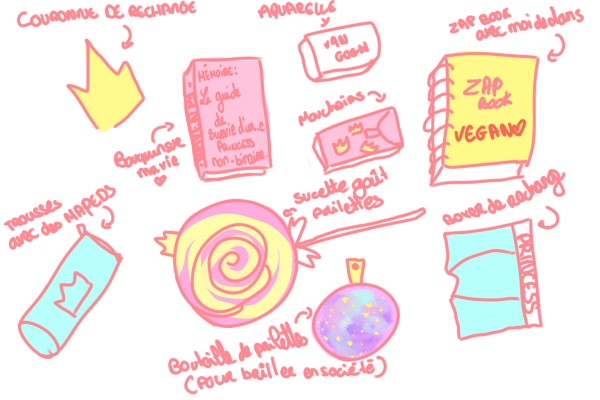 COURONNE DE RECHANGE
AQUARELLE
VAN
GOGH
ZAP BOOK
avec moi dedans
ZAP
BOOK
VEGAN
MÉMOIRE:
Le guide
de
Survie d'un.e
PRINCESS
non-binaire.
Bouquin de
ma vie
Mouchoirs
TROUSSES
AVEC des MAPEDS
Sucette goût
paillettes
Boxer de rechange
PRINCESS
Bouteille de paillettes
(pour briller en société)